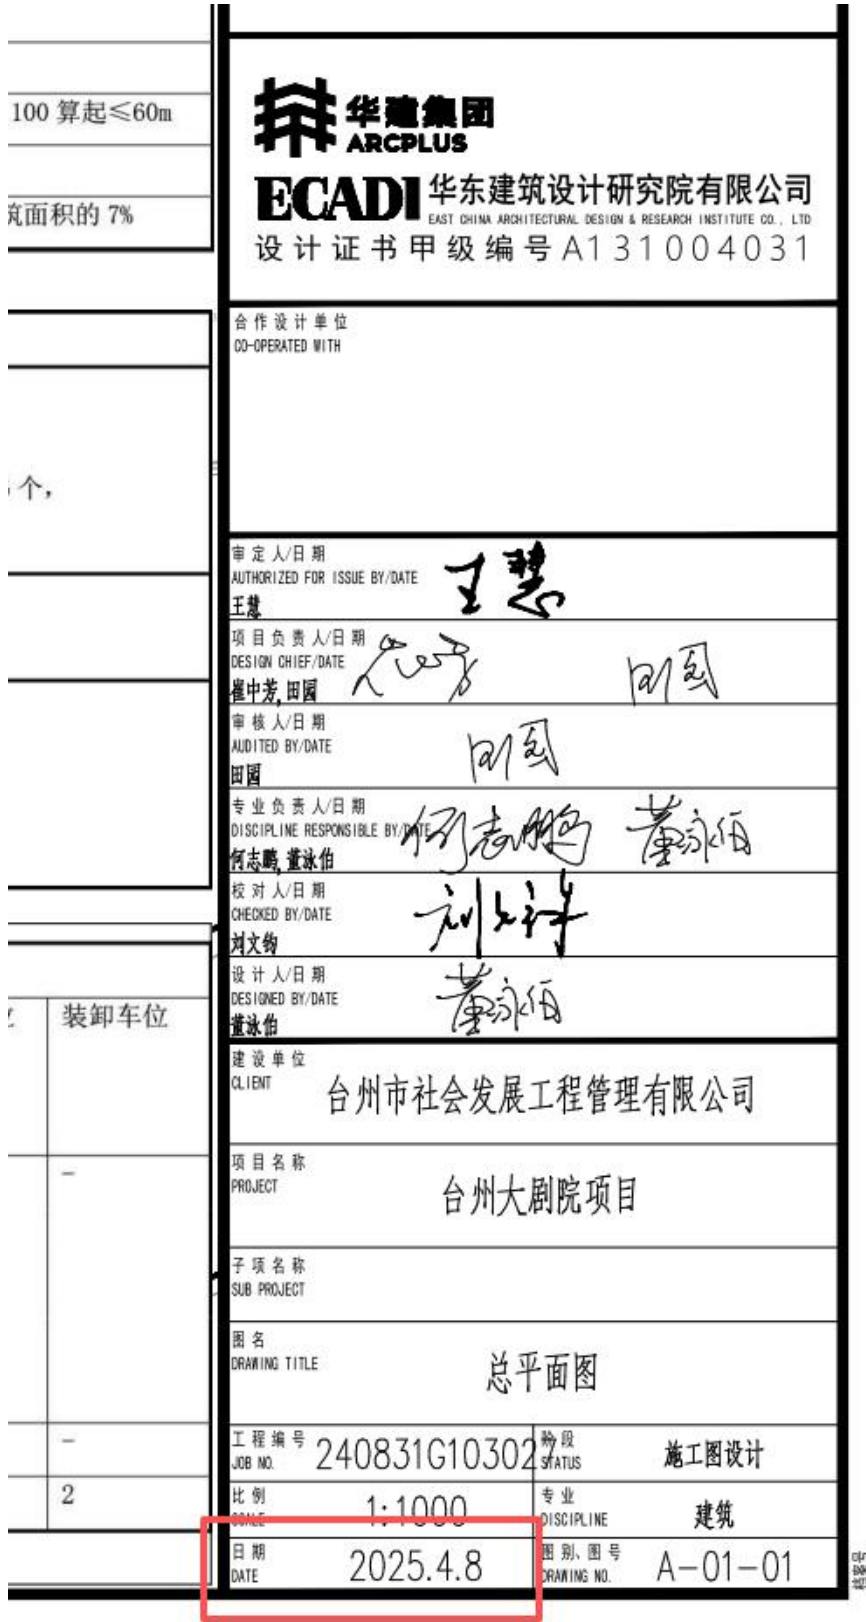 100 算起≤60m
筑面积的 7%
个，
装卸车位
-
-
2
华建集团
ARCPLUS
ECADI 华东建筑设计研究院有限公司
EAST CHINA ARCHITECTURAL DESIGN & RESEARCH INSTITUTE CO., LTD
设计证书甲级编号A131004031
合作设计单位
CO-OPERATED WITH
审定人/日期
AUTHORIZED FOR ISSUE BY/DATE
王慧
王慧
项目负责人/日期
DESIGN CHIEF/DATE
崔中芳,田园
田园
审核人/日期
AUDITED BY/DATE
田园
田园
专业负责人/日期
DISCIPLINE RESPONSIBLE BY/DATE
何志鹏 董泳伯
何志鹏,董泳伯
校对人/日期
CHECKED BY/DATE
刘文钧
设计人/日期
DESIGNED BY/DATE
董泳伯
董泳伯
建设单位
CLIENT
台州市社会发展工程管理有限公司
项目名称
PROJECT
台州大剧院项目
子项名称
SUB PROJECT
图名
DRAWING TITLE
总平面图
工程编号
JOB NO.
240831G103027
阶段
STATUS
施工图设计
比例
SCALE
1:1000
专业
DISCIPLINE
建筑
日期
DATE
2025.4.8
图别、图号
DRAWING NO.
A-01-01
档案号